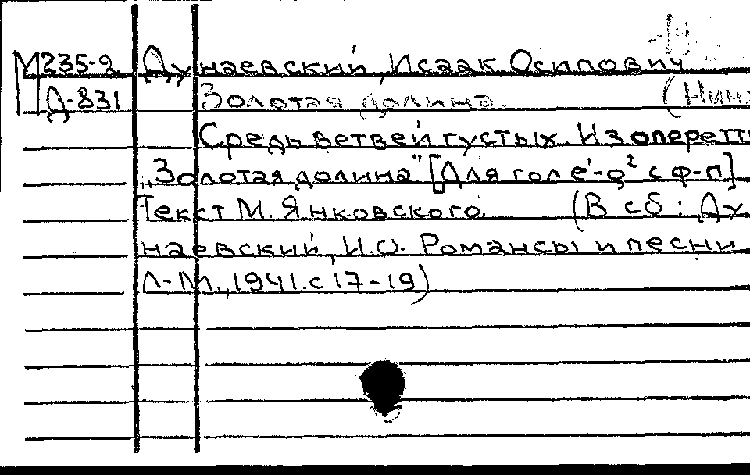 М235-9 Дунаевский, Исаак Осипович
Д-831 Золотая долина. (Нин
Средь ветвей густых. Из оперетт
„Золотая долина" [Для гол e'-g² с ф-п]
Текст М. Янковского. (В сб: Ду
наевский, И.О. Романсы и песни
Л-М., 1941. с 17-19)